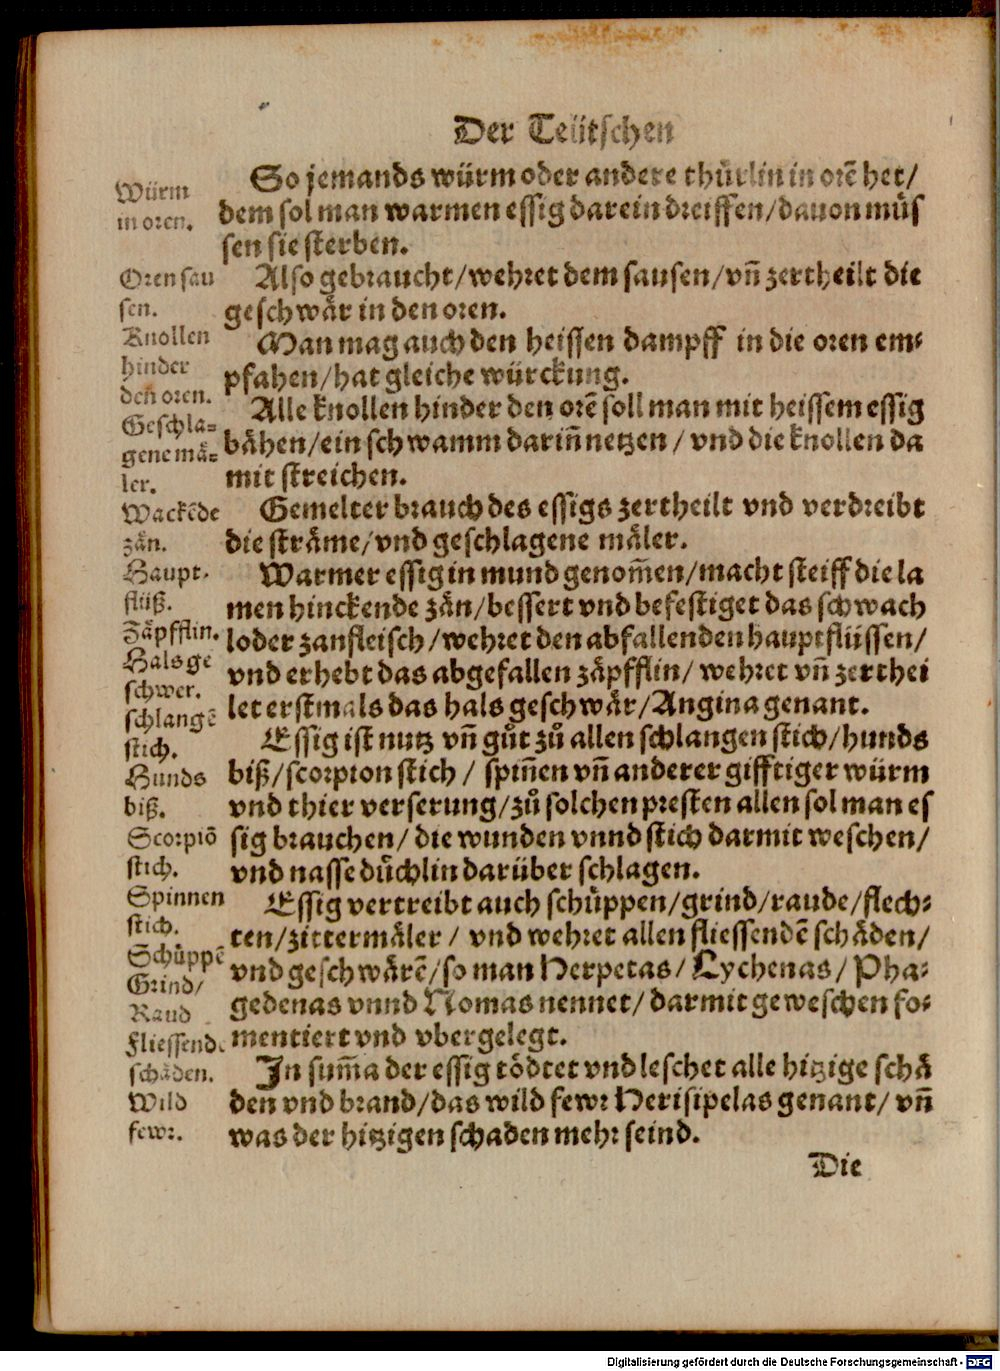 Der Teütschen
Würm
in oren.
Oren sau
sen.
Knollen
hinder
den oren.
Geschla=
gene mä=
ler.
Wackēde
zän.
Haupt=
flüß.
Zäpfflin.
Hals ge
schwer.
schlangē
stich.
Hunds
biß.
Scorpiō
stich.
Spinnen
stich.
Schüppē
Grind/
Raud
Fliessend.
schäden.
Wild
fewr.
So jemands würm oder andere thürlin in orē het/
dem sol man warmen essig darein dreiffen/dauon müs
sen sie sterben.
Also gebraucht/wehret dem sausen/vñ zertheilt die
geschwär in den oren.
Man mag auch den heissen dampff in die oren em=
pfahen/hat gleiche würckung.
Alle knollen hinder den orē soll man mit heissem essig
bähen/ein schwamm dariñ netzen / vnd die knollen da
mit streichen.
Gemelter brauch des essigs zertheilt vnd verdreibt
die sträme/vnd geschlagene mäler.
Warmer essig in mund genom̄en/macht steiff die la
men hinckende zän/bessert vnd befestiget das schwach
loder zanfleisch/wehret den abfallenden hauptflüssen/
vnd erhebt das abgefallen zäpfflin/ wehret vñ zerthei
let erstmals das hals geschwär/Angina genant.
Essig ist nutz vñ gůt zů allen schlangen stich/hunds
biß/scorpion stich / spiñen vñ anderer gifftiger würm
vnd thier verserung/zů solchen presten allen sol man es
sig brauchen/ die wunden vnnd stich darmit weschen/
vnd nasse düchlin darüber schlagen.
Essig vertreibt auch schüppen/grind/raude/flech=
ten/zittermäler / vnd wehret allen fliessendē schäden/
vnd geschwärē/so man Herpetas/ Lychenas/ Pha=
gedenas vnnd Nomas nennet/ darmit geweschen fo=
mentiert vnd vbergelegt.
In sum̄a der essig tödtet vnd leschet alle hitzige schä
den vnd brand/das wild fewr Herisipelas genant/ vñ
was der hitzigen schaden mehr seind.
Die
Digitalisierung gefördert durch die Deutsche Forschungsgemeinschaft - DFG